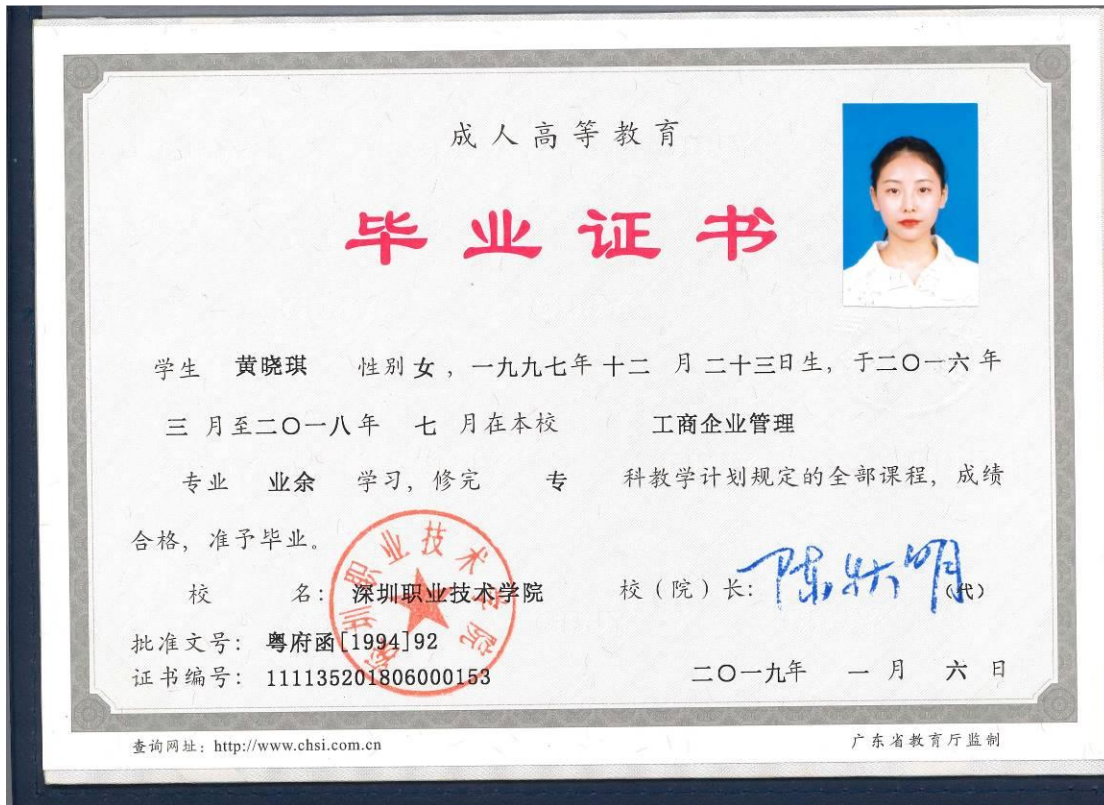 成人高等教育
毕业证书
学生 黄晓琪 性别 女，一九九七年 十二 月 二十三日生，于二〇一六年
三 月至二〇一八年 七 月在本校 工商企业管理
专业 业余 学习，修完 专 科教学计划规定的全部课程，成绩
合格，准予毕业。
深圳职业技术学院
校 名： 深圳职业技术学院 校（院）长： （代）
批准文号： 粤府函[1994]92
证书编号： 111135201806000153 二〇一九年 一 月 六 日
查询网址：http://www.chsi.com.cn 广东省教育厅监制